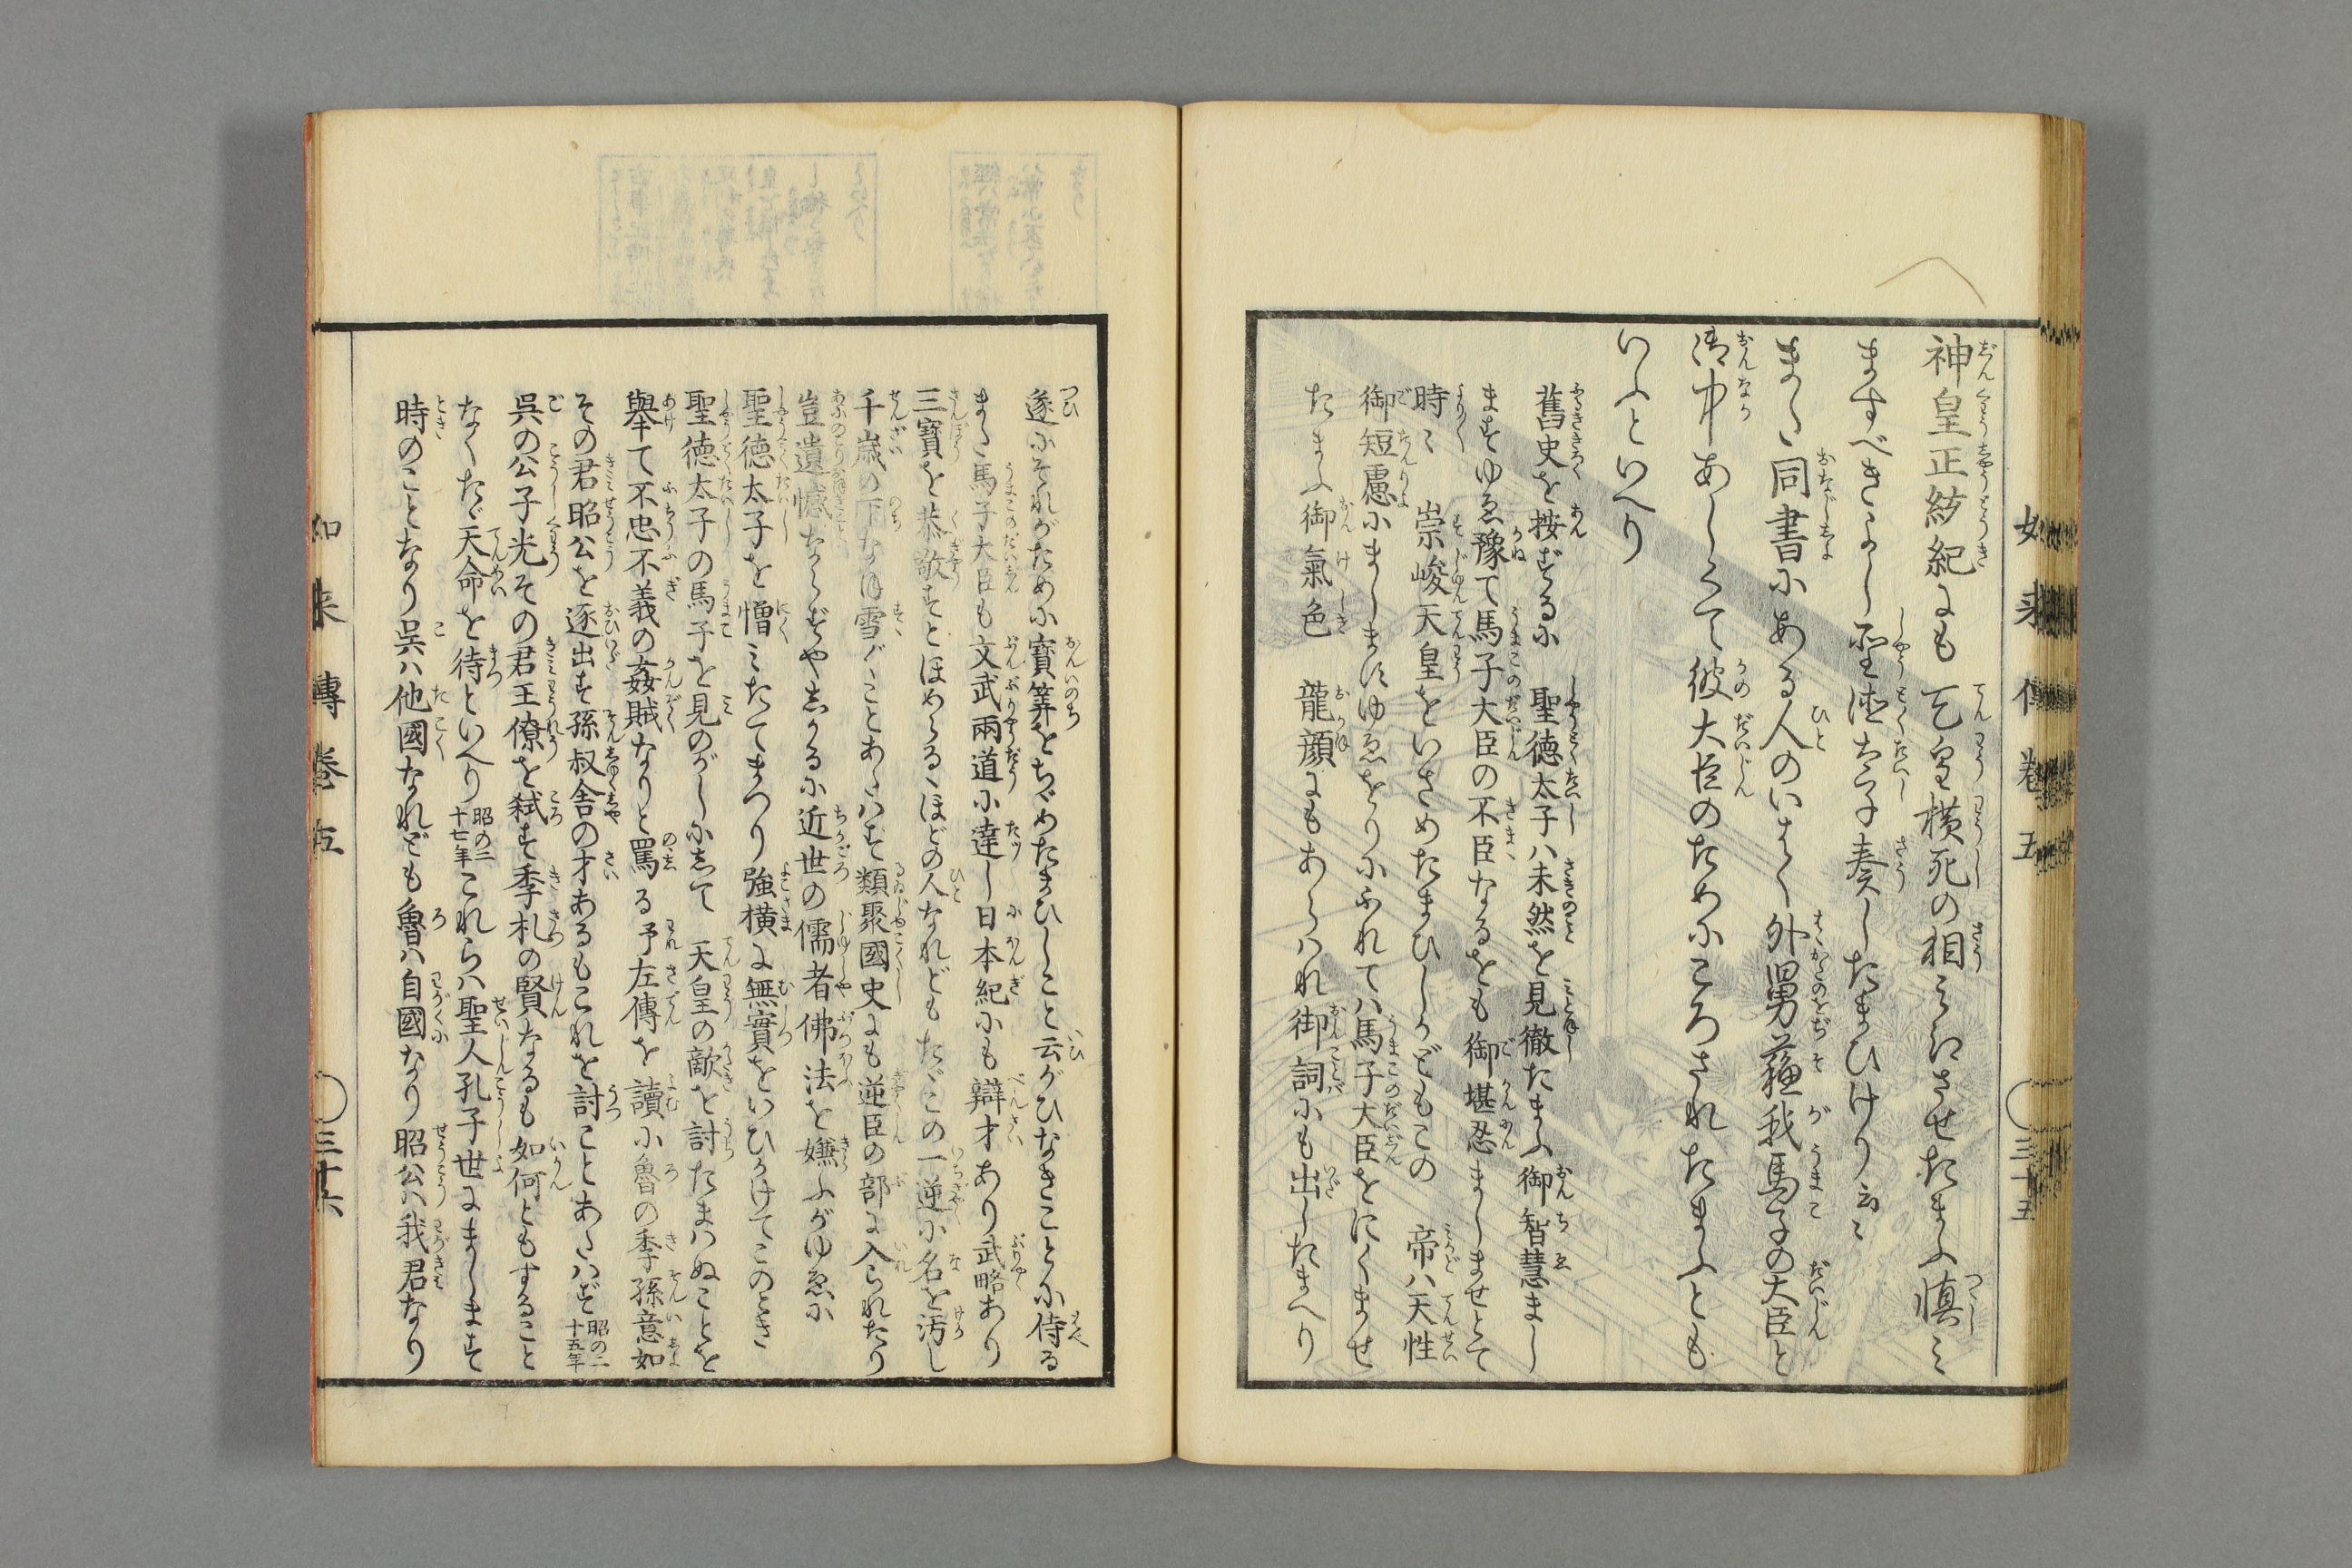 神皇正統紀にも　天皇横死の相みえさせたまふ慎み
ますべきよし聖徳太子奏したまひけり云々
また同書にある人のいはく外舅蘓我馬子の大臣と
御中あしくて彼大臣のためにころされたまふとも
いふといへり
舊史を按ずるに　聖徳太子ハ未然を見徹たまふ御智慧まし
ますゆゑ豫て馬子大臣の不臣なるをも御堪忍ましませとて
時々　崇峻天皇をいさめたまひしかどもこの　帝ハ天性
御短慮にましますゆゑをりにふれてハ馬子大臣をにくませ
たまふ御氣色　龍顔にもあらハれ御詞にも出したまへり
如来傳巻五
三十五
遂にそれがために寳筭をちゞめたまひしこと云がひなきことに侍る
また馬子大臣も文武兩道に達し日本紀にも辯才あり武略あり
三寳を恭敬すとほめらるゝほどの人なれどもたゞこの一逆に名を汚し
千歳の下なほ雪ぐことあたハず類聚國史にも逆臣の部に入られたり
豈遺憾ならずやしかるに近世の儒者佛法を嫌ふがゆゑに
聖徳太子を憎みたてまつり強横に無實をいひかけてこのとき
聖徳太子の馬子を見のがしにして　天皇の敵を討たまハぬことを
舉て不忠不義の姦賊なりと罵る予左傳を讀に魯の季孫意如
その君昭公を逐出す孫叔舎の才あるもこれを討ことあたハず昭の二十五年
呉の公子光その君王僚を弑す季札の賢なるも如何ともすること
なくたゞ天命を待といへり昭の二十七年これらハ聖人孔子世にまします
時のことなり呉ハ他國なれども魯ハ自國なり昭公ハ我君なり
如来傳巻五
三十六